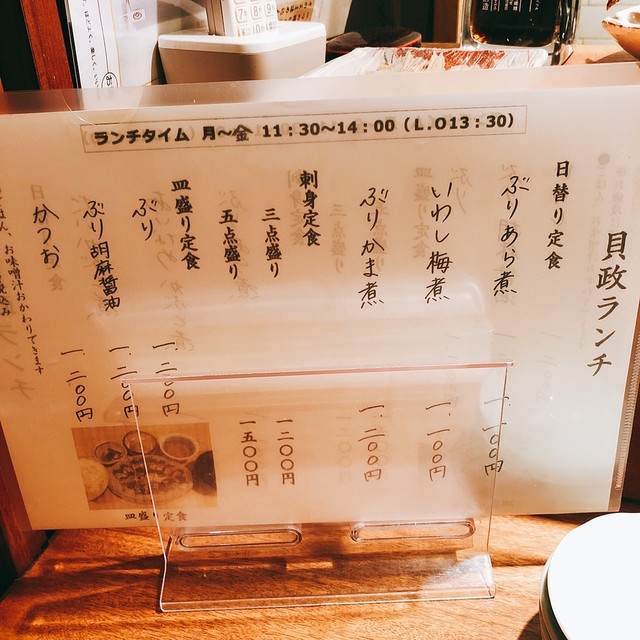 ランチタイム 月～金 11：30～14：00（L.O13：30）
貝政ランチ
日替り定食
ぶりあら煮 一、一〇〇円
いわし梅煮 一、一〇〇円
ぶりかま煮 一、二〇〇円
刺身定食
三点盛り 一二〇〇円
五点盛り 一五〇〇円
皿盛り定食
ぶり 一、二〇〇円
ぶり胡麻醤油 一、二〇〇円
かつお 一、二〇〇円
お味噌汁おかわりできます
皿盛り定食